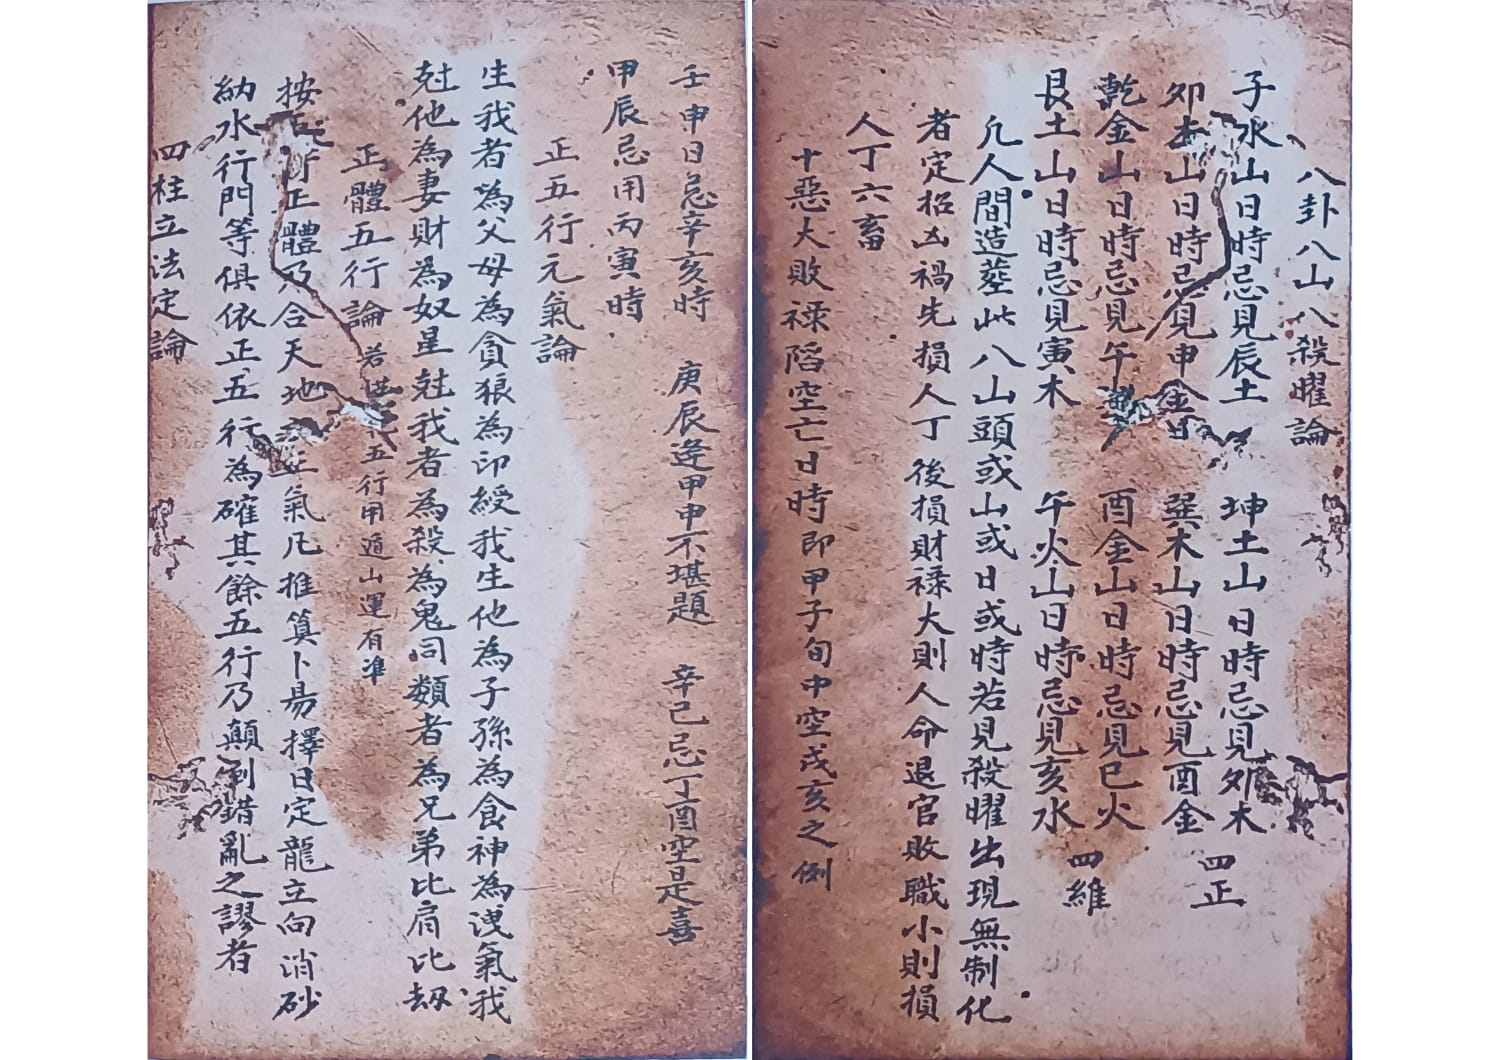 八卦八山八殺曜論
子水山日時忌見辰土 坤土山日時忌見夘木 四正
夘木山日時忌見申金 巽木山日時忌見酉金
乾金山日時忌見午 酉金山日時忌見巳火 四維
艮土山日時忌見寅木 午火山日時忌見亥水
凡人間造塟此八山頭或山或日或時若見殺曜出現無制化
者定招凶禍先損人丁後損財祿大則人命退官敗職小則損
人丁六畜
十惡大敗祿陷空亡日時即甲子旬中空戌亥之例
壬申日忌辛亥時 庚辰逢甲申不堪題 辛巳忌丁酉空是喜
甲辰忌用丙寅時
正五行元氣論
生我者為父母為貪狼為印綬我生他為子孫為食神為洩氣我
尅他為妻財為奴星尅我者為殺為鬼同類者為兄弟比肩比刼
正體五行論 若 五行用遁山運有凖
按 正體乃合天地 氣凡推算卜昜擇日定龍立向消砂
納水行門等俱依正五行為確其餘五行乃顛倒錯亂之謬者
四柱立法定論